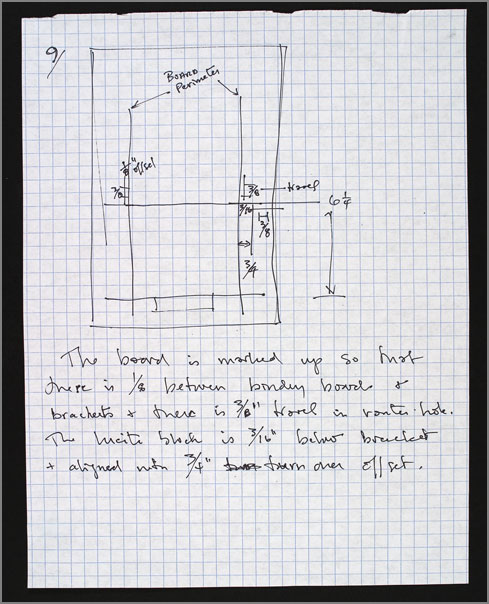 9/
BOARD
Perimeter
1/8" offset
3/8
3/8
travel
3/16
6 1/4
3/8
3/4
The board is marked up so that
there is 1/8 between boards &
brackets & there is 3/8" travel in router hole.
The lucite block is 3/16" below bracket
& aligned with 3/4" turn over offset.